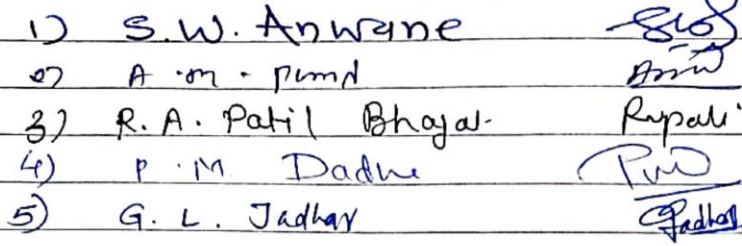 1) S.W. Anwane
2) A.M.
3) R.A. Patil Bhagat Rupali
4) P.M. Dadhe
5) G. L. Jadhav Jadhav